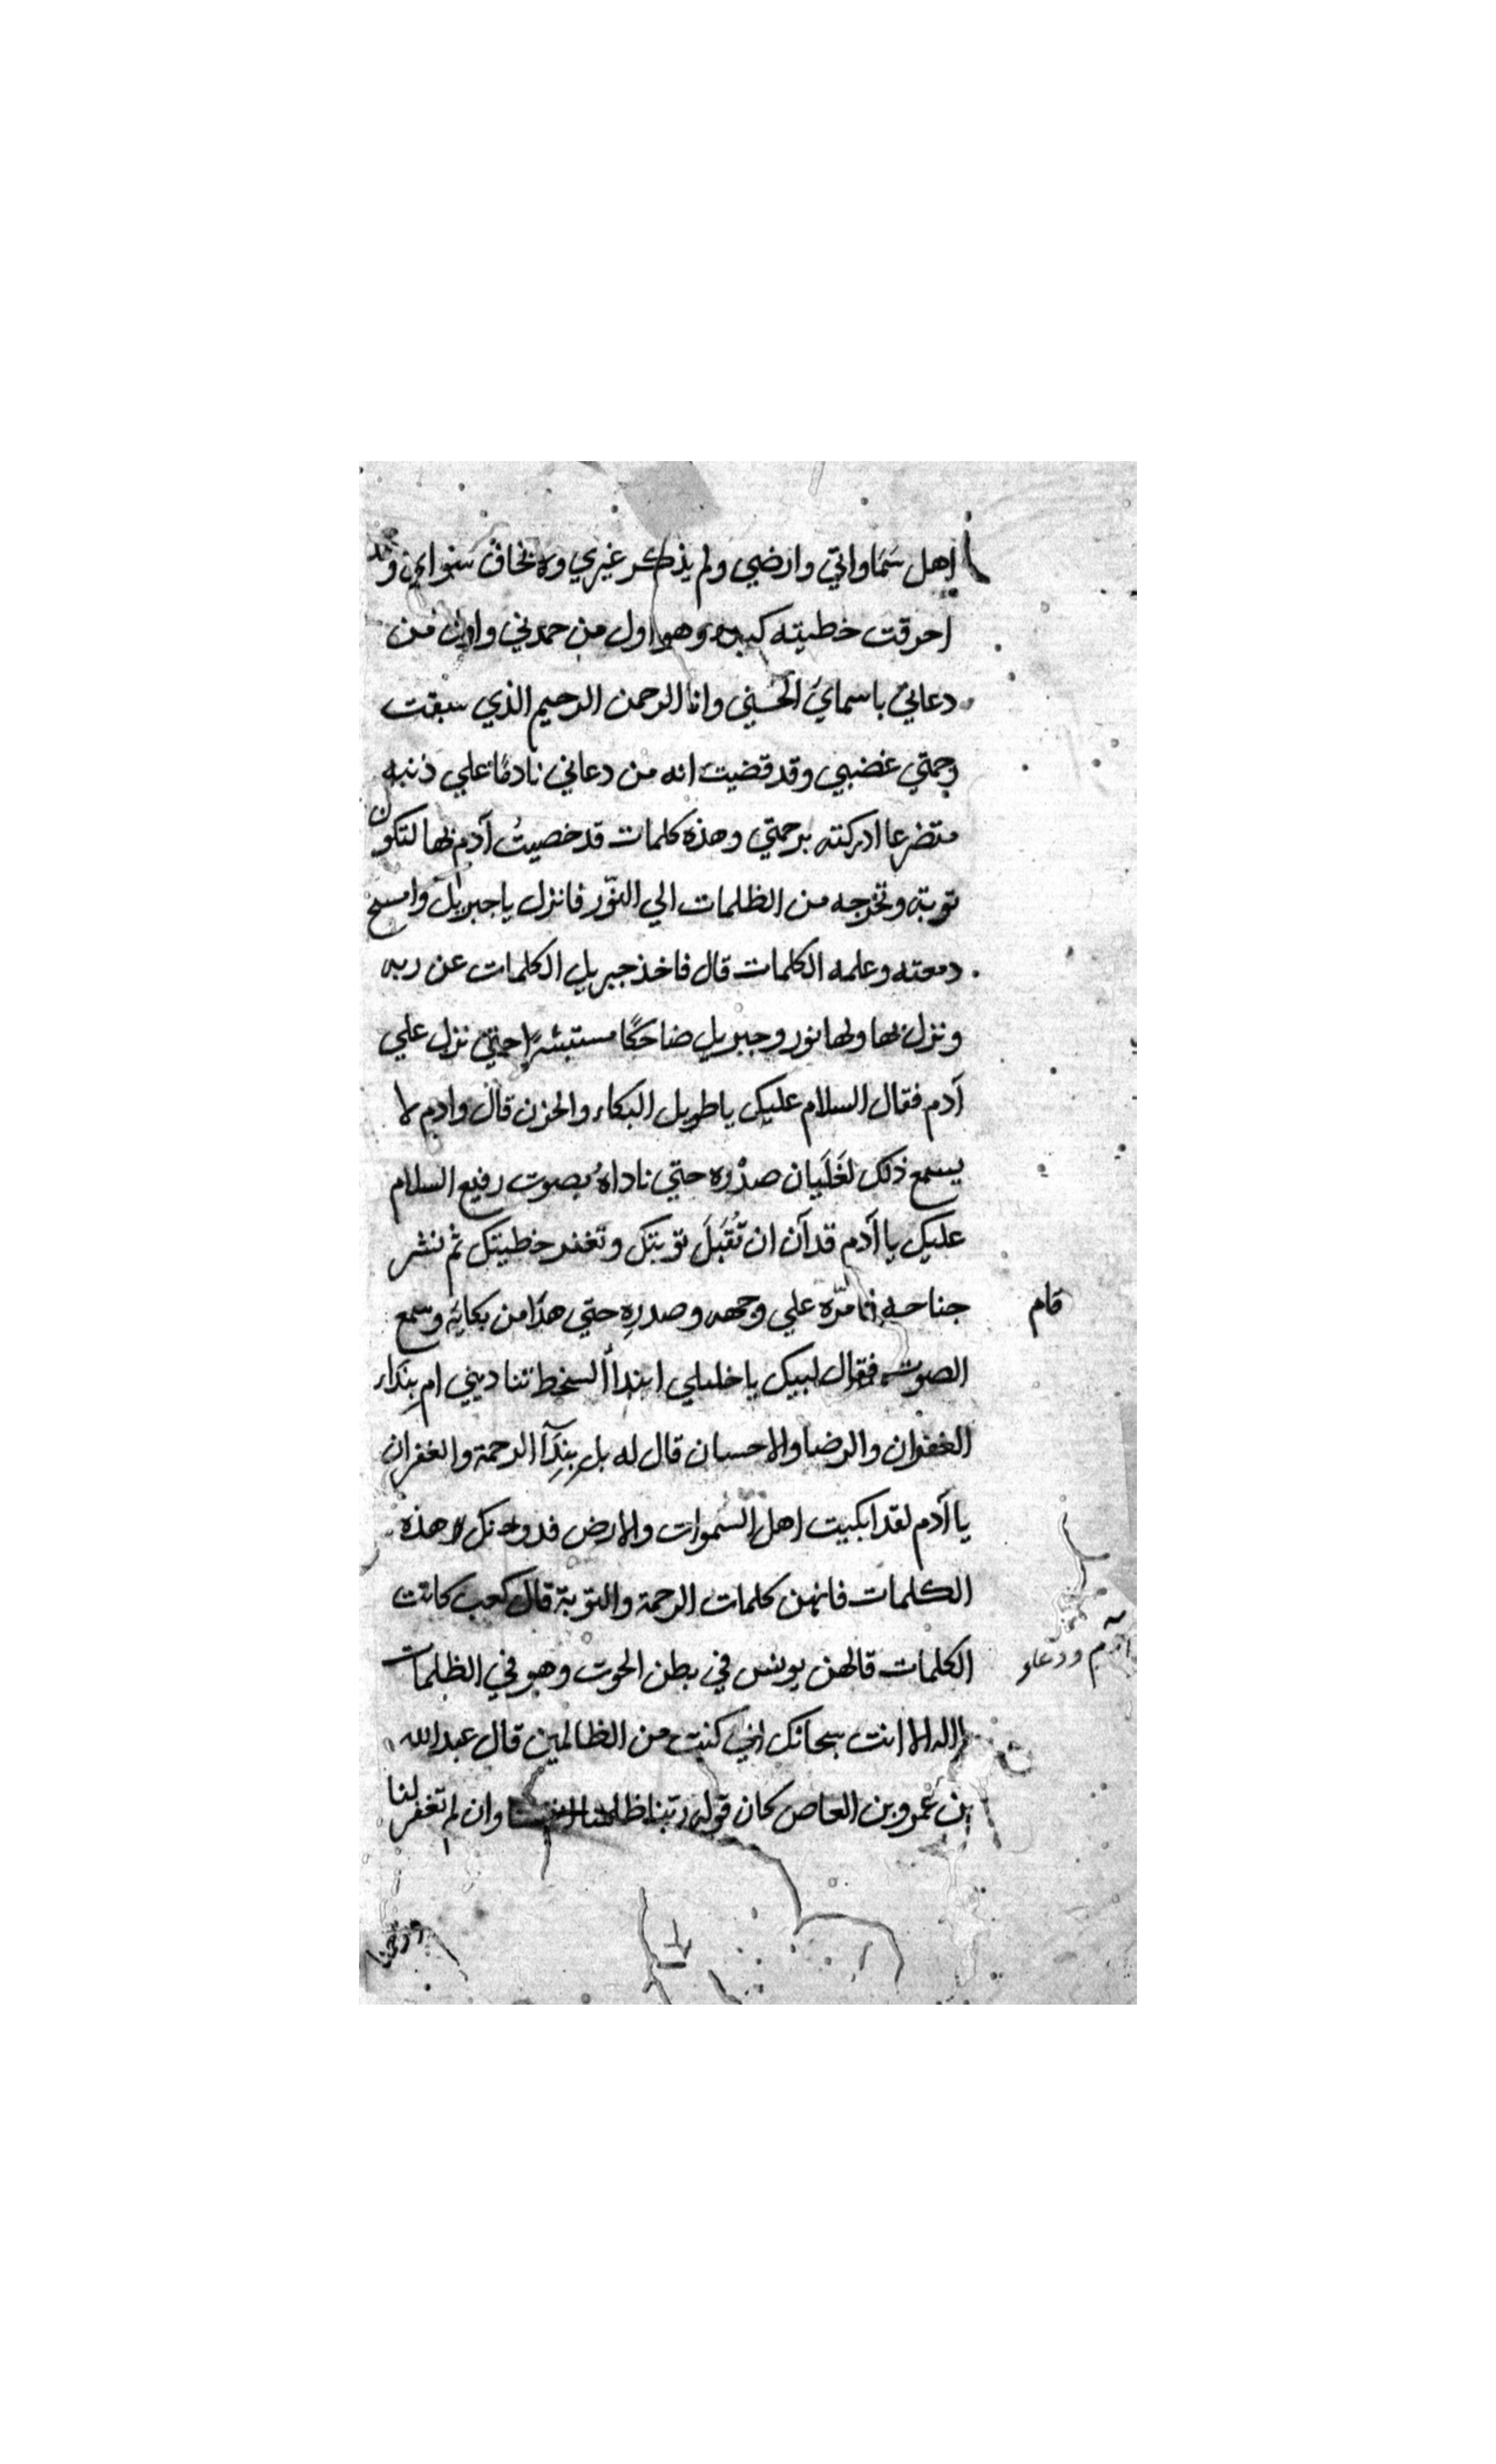 اهل سَمَاواتي وارضي ولم يذكر غيري ولا يخاف سوايي وقد
احرقت خطيته كبده وهو اول من حمدني واول من
دعاني باسمايَ الحُسني وانا الرحمن الرحيم الذي سبقت
رحمتي غضبي وقد قضيت انه من دعاني نادمًا علي ذنبه
متضرعا ادركته برحمتي وهذه كلمات قد خصيتُ آدم بها لتكون
توبته وتخرجه من الظلمات الي النّور فانزل يا جبريل وامسح
دمعته وعلمه الكلمات قال فاخذ جبريل الكلمات عن ربه
ونزل بها ولها نور وجبريل ضاحكًا مستبشرًا حتي نزل علي
آدم فقال السلام عليك يا طويل البكاء والحزن قال وادم لا
يسمع ذلك لغَلَيان صدْره حتي ناداهُ بصوت رفيع السلام
عليك يا آدم قد آن ان تُقبَلَ توبتك وتغفر خطيتك ثم نشر
جناحه فامرّه علي وجهه وصدرِه حتي هدَا من بكايَه وسمع
قام
الصوت فقال لبيك يا خليلي ابندآ السخط تناديني ام بنداء
الغفران والرضا والاحسان قال له بل بنِدَآ الرحمة والغفران
يا آدم لقد ابكيت اهل السموات والارض فدونك هذه
الكلمات فانهن كلمات الرحمة والتوبة قال كعب كانت
الكلمات قالهن يونس في بطن الحوت وهو في الظلمات
آدم ودعاء
لا اله الا انت سبحانك اني كنت من الظالمين قال عبد الله
بن عَمرو بن العاص كان قوله ربّنا ظلمنا انفسنا وان لم تغفر لنا
وترحمنا